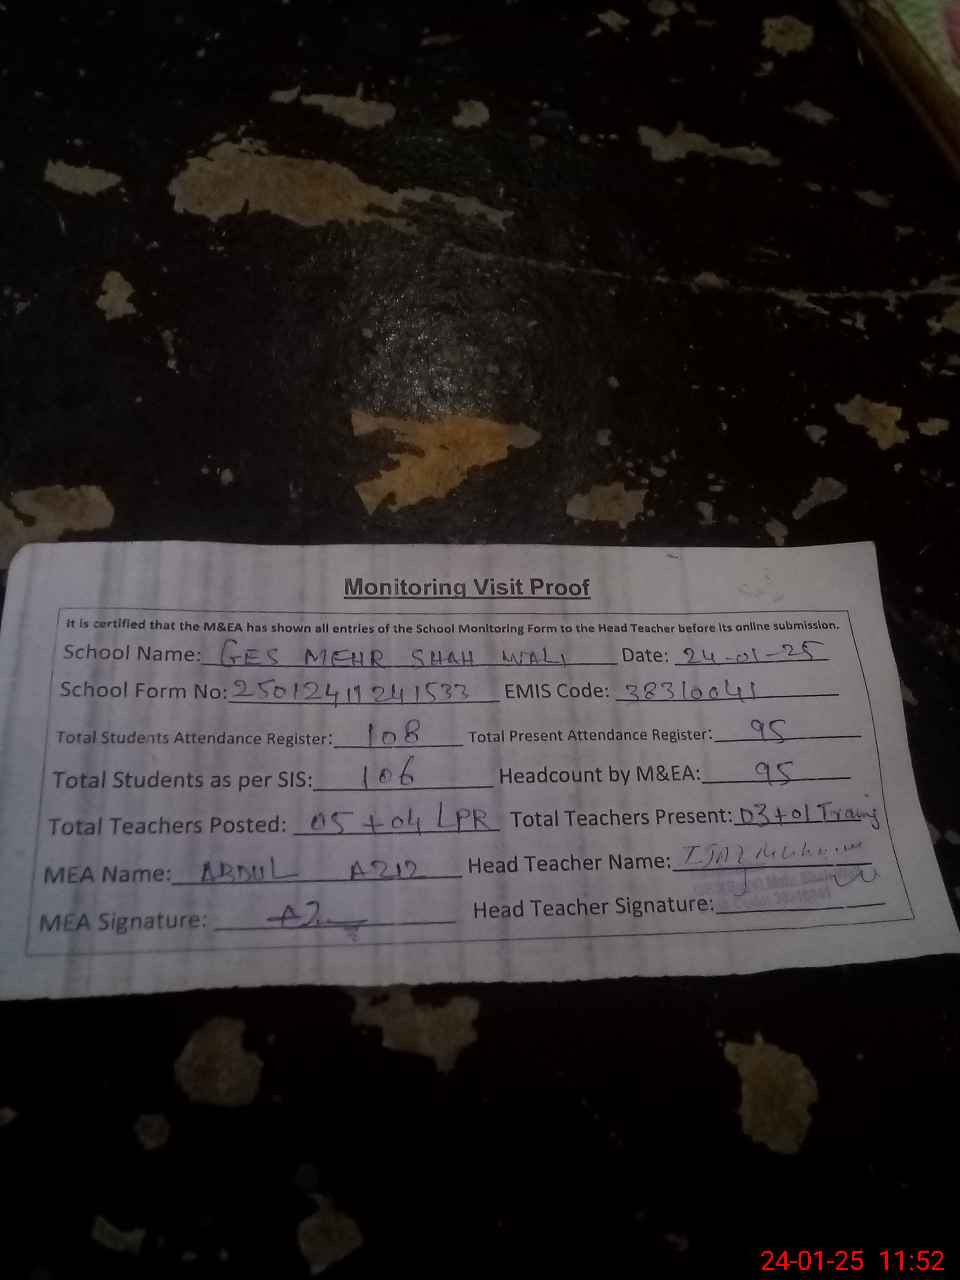 Monitoring Visit Proof
It is certified that the M&EA has shown all entries of the School Monitoring Form to the Head Teacher before its online submission.
School Name: GES MEHR SHAH WALI Date: 24-01-25
School Form No: 25012411241533 EMIS Code: 38310041
Total Students Attendance Register: 108 Total Present Attendance Register: 95
Total Students as per SIS: 106 Headcount by M&EA: 95
Total Teachers Posted: 05 + 04 LPR Total Teachers Present: 03+01 Traing
MEA Name: ABDUL AZIZ Head Teacher Name:
MEA Signature: Head Teacher Signature:
24-01-25 11:52